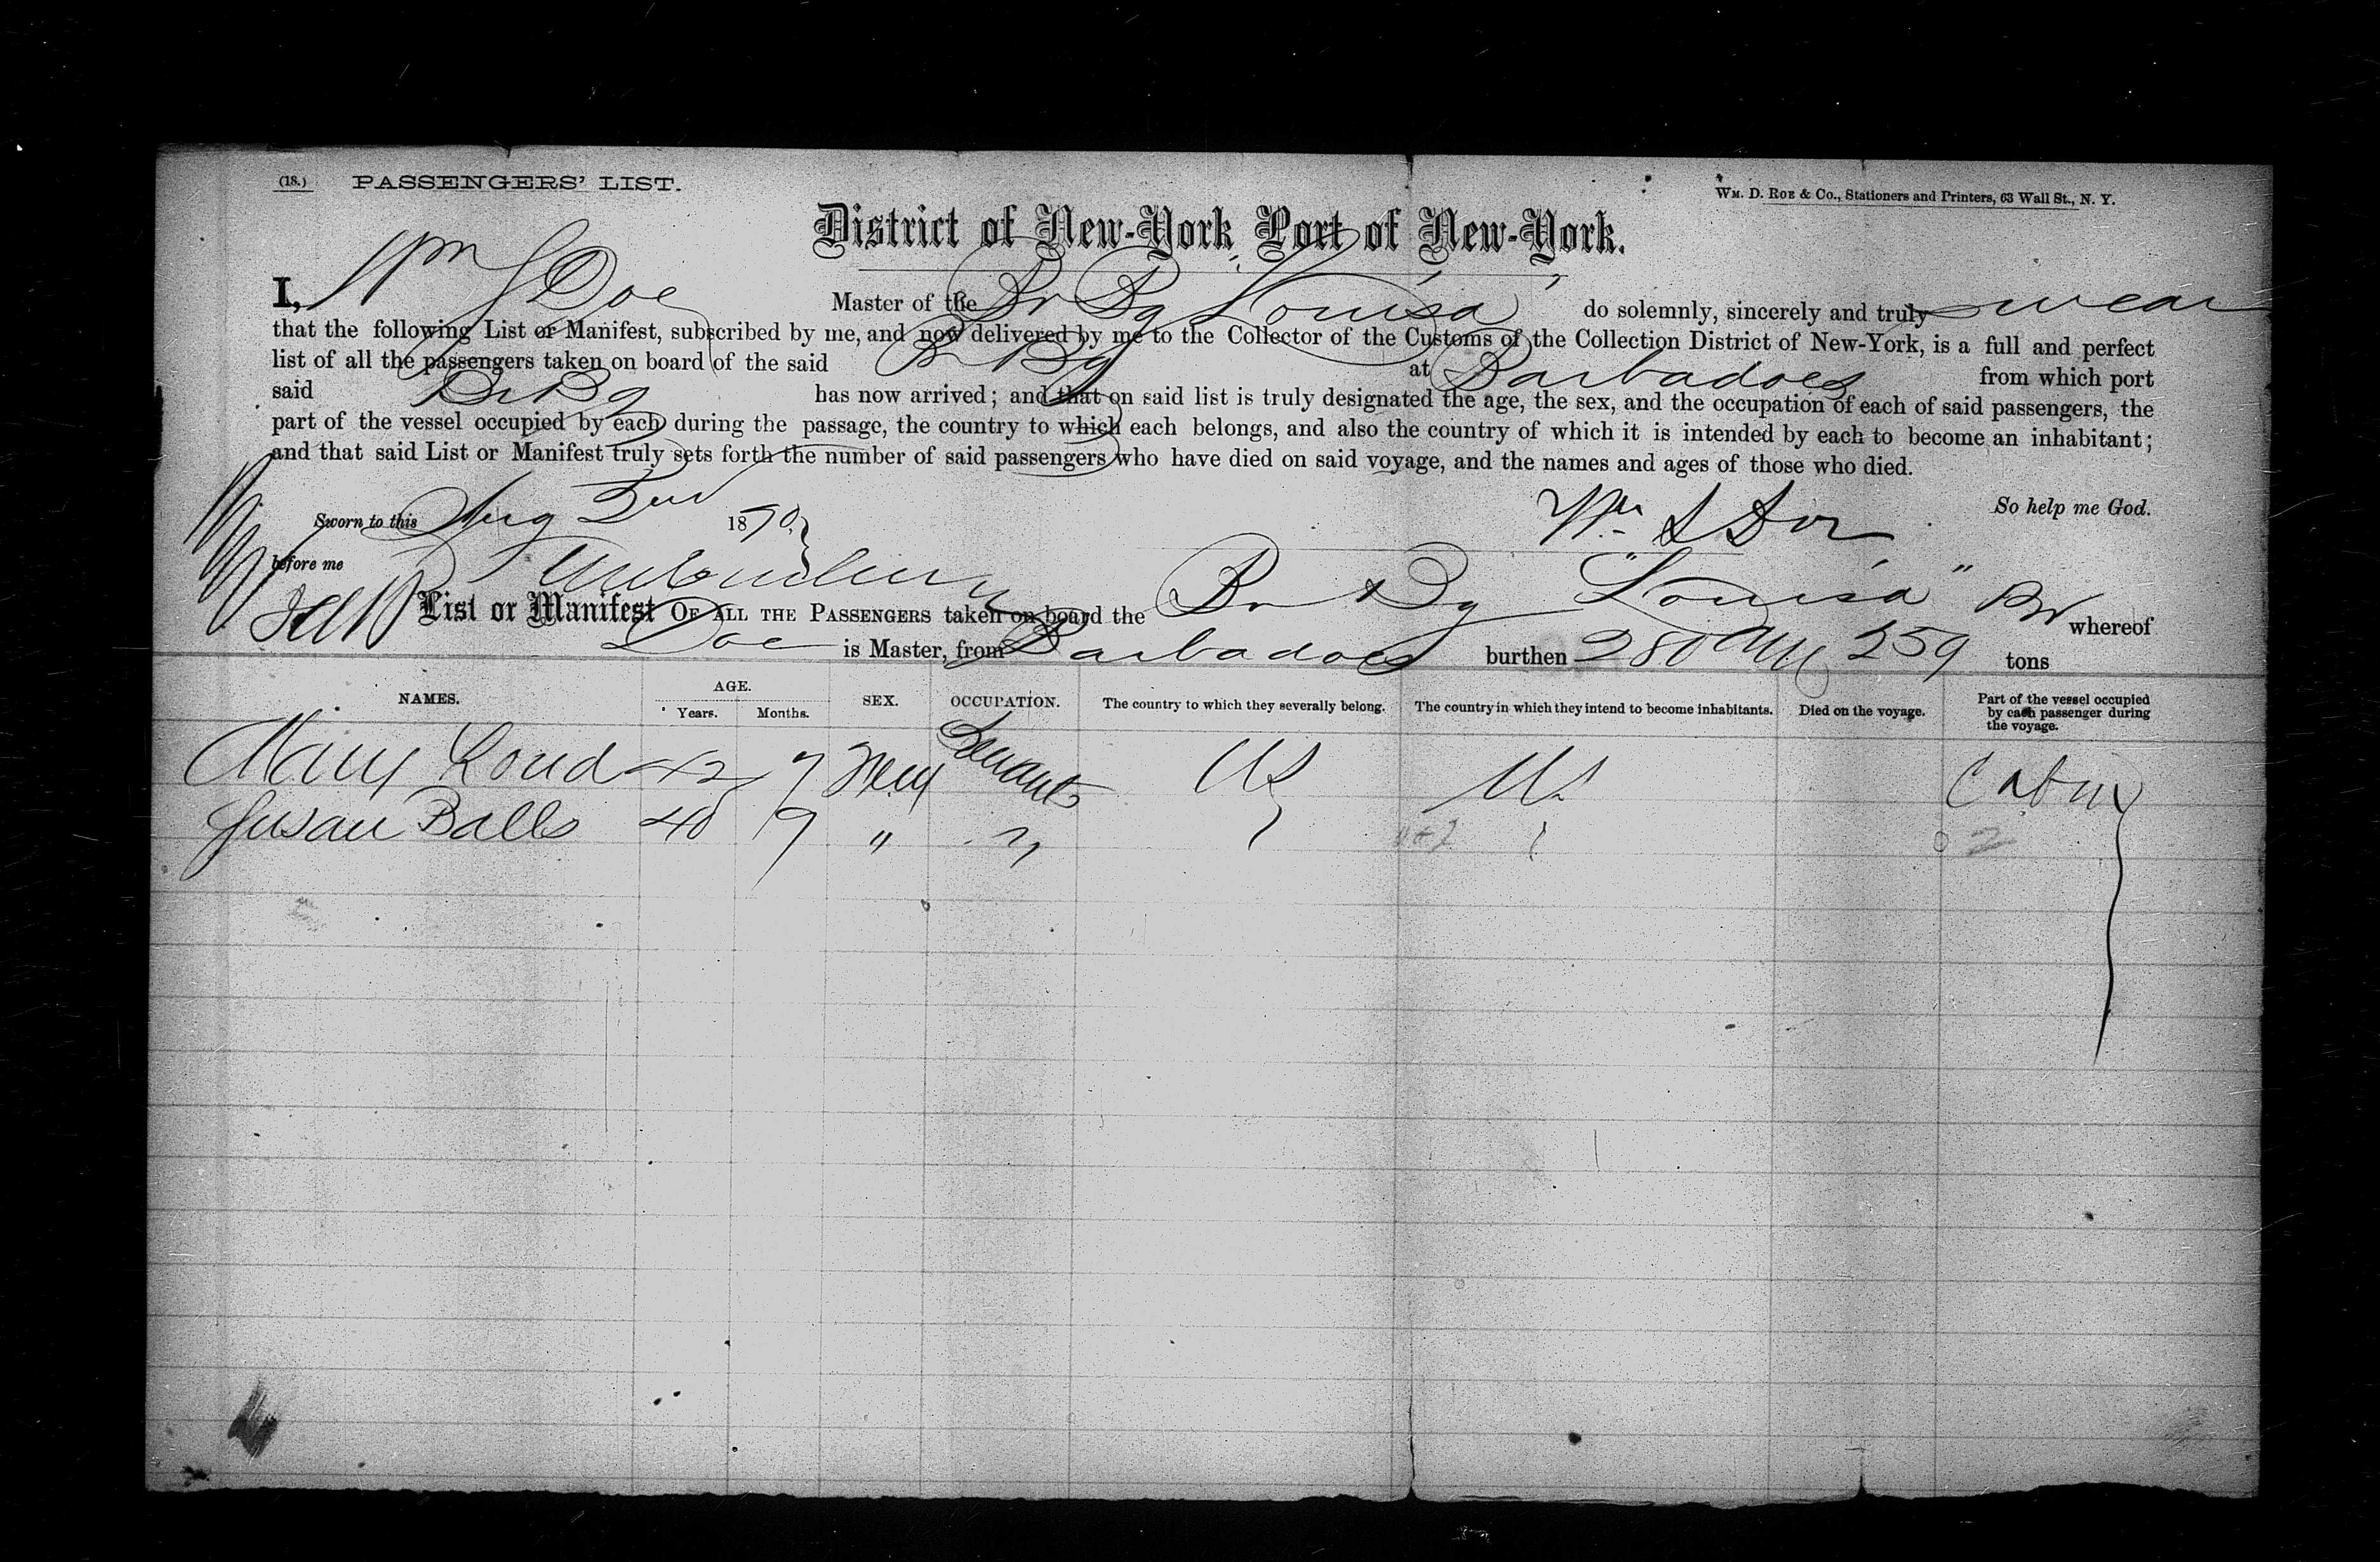 (18.) PASSENGERS' LIST.
WM. D. ROE & Co., Stationers and Printers, 63 Wall St., N. Y.
District of New-York Port of New-York.
I, Wm S Doe Master of the Br Bg "Louisa" do solemnly, sincerely and truly swear
that the following List or Manifest, subscribed by me, and now delivered by me to the Collector of the Customs of the Collection District of New-York, is a full and perfect
list of all the passengers taken on board of the said Br Bg at Barbadoes from which port
said Br Bg has now arrived; and that on said list is truly designated the age, the sex, and the occupation of each of said passengers, the
part of the vessel occupied by each during the passage, the country to which each belongs, and also the country of which it is intended by each to become an inhabitant;
and that said List or Manifest truly sets forth the number of said passengers who have died on said voyage, and the names and ages of those who died.
So help me God.
Sworn to this Aug 1870. Wm S Doe
before me
List or Manifest OF ALL THE PASSENGERS taken on board the Br Bg "Louisa" whereof
Doe is Master, from Barbadoes burthen 280 259 tons
NAMES. AGE. Years. Months. SEX. OCCUPATION. The country to which they severally belong. The country in which they intend to become inhabitants. Died on the voyage. Part of the vessel occupied by each passenger during the voyage.
Mary Loud 42 7 Servants US US Cabin
Susan Balls 40 9 " "
2